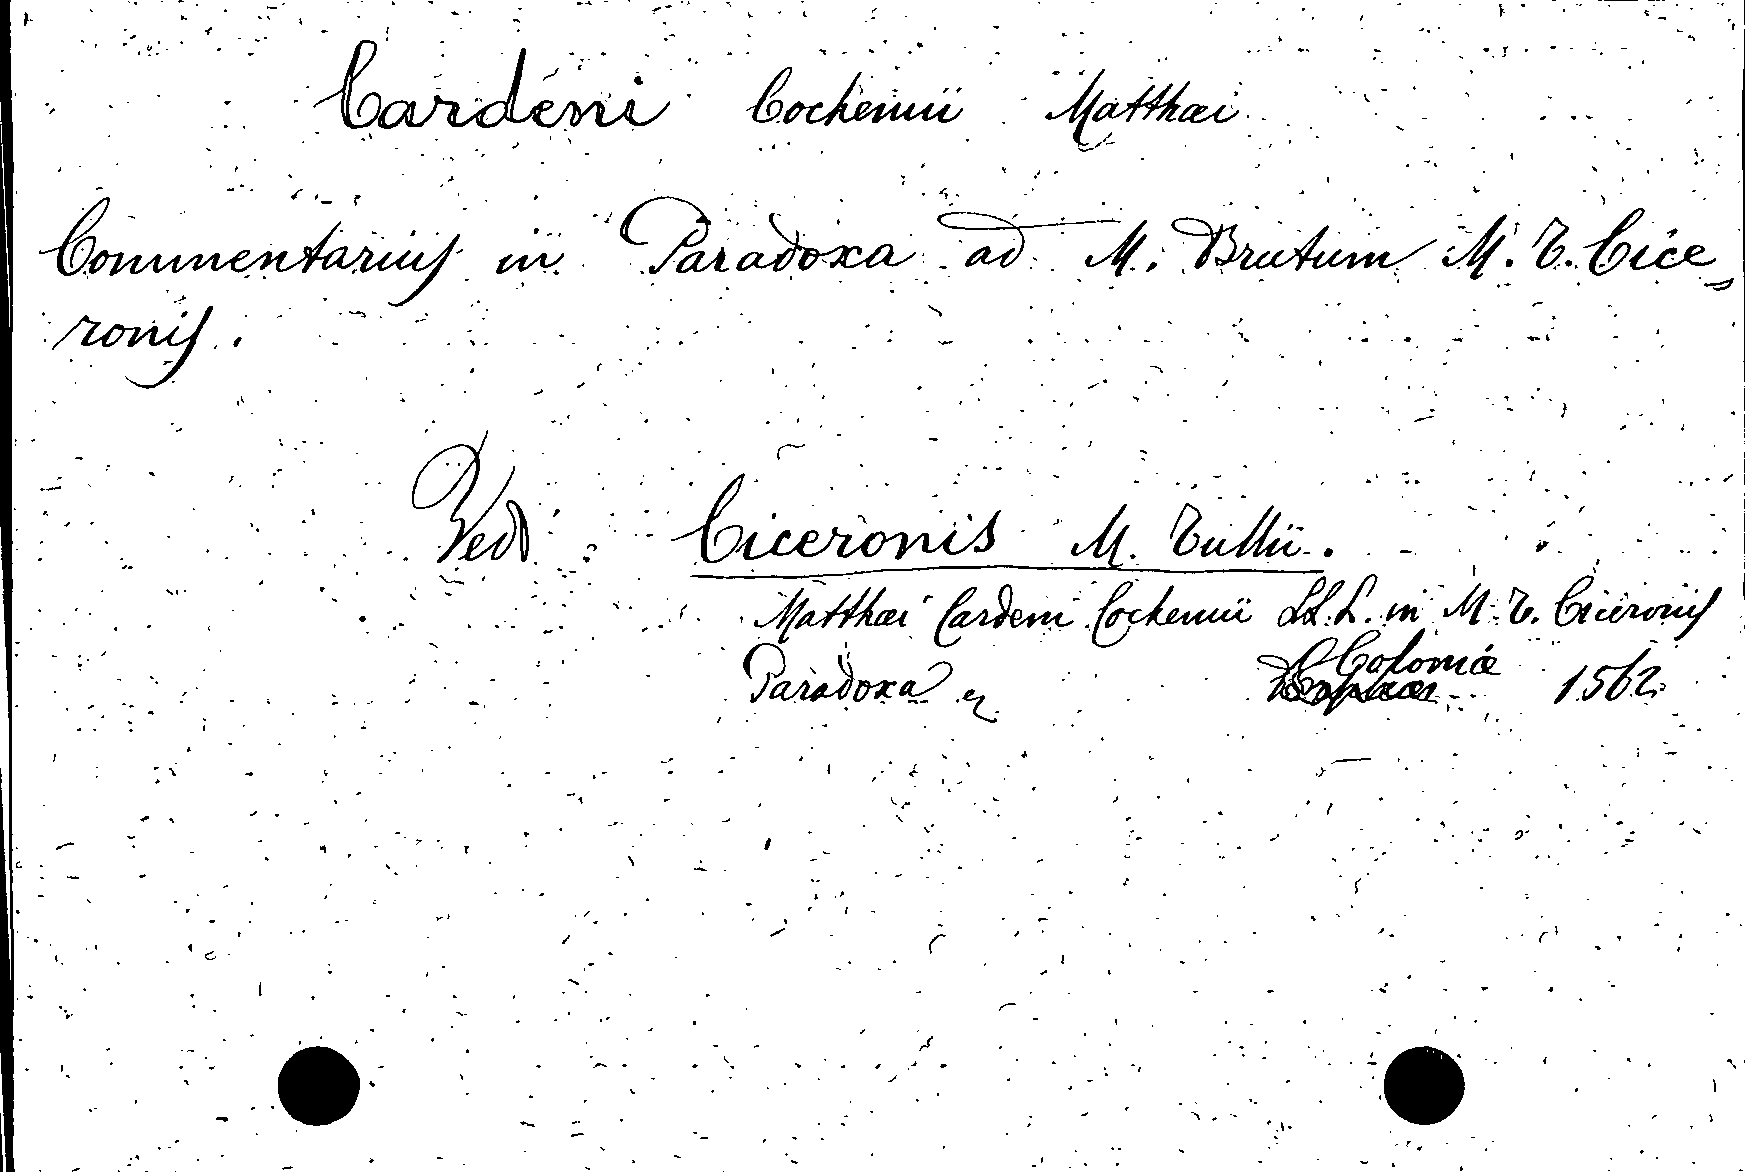 Cardéni Cochemii Matthæi
Commentarius in Paradoxa ad M. Brutum M. T. Cice„
ronis.
Ved: Ciceronis M. Tullii.
Matthæi Cardeni Cochemii LL.L. in M. T. Ciceronis
Paradoxa Coloniæ 1562